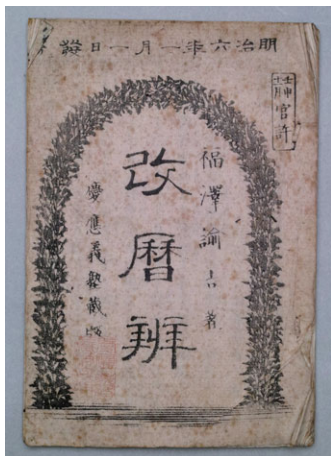 明治六年一月一日發
官許
福澤諭吉著
改曆辨
慶應義塾藏版